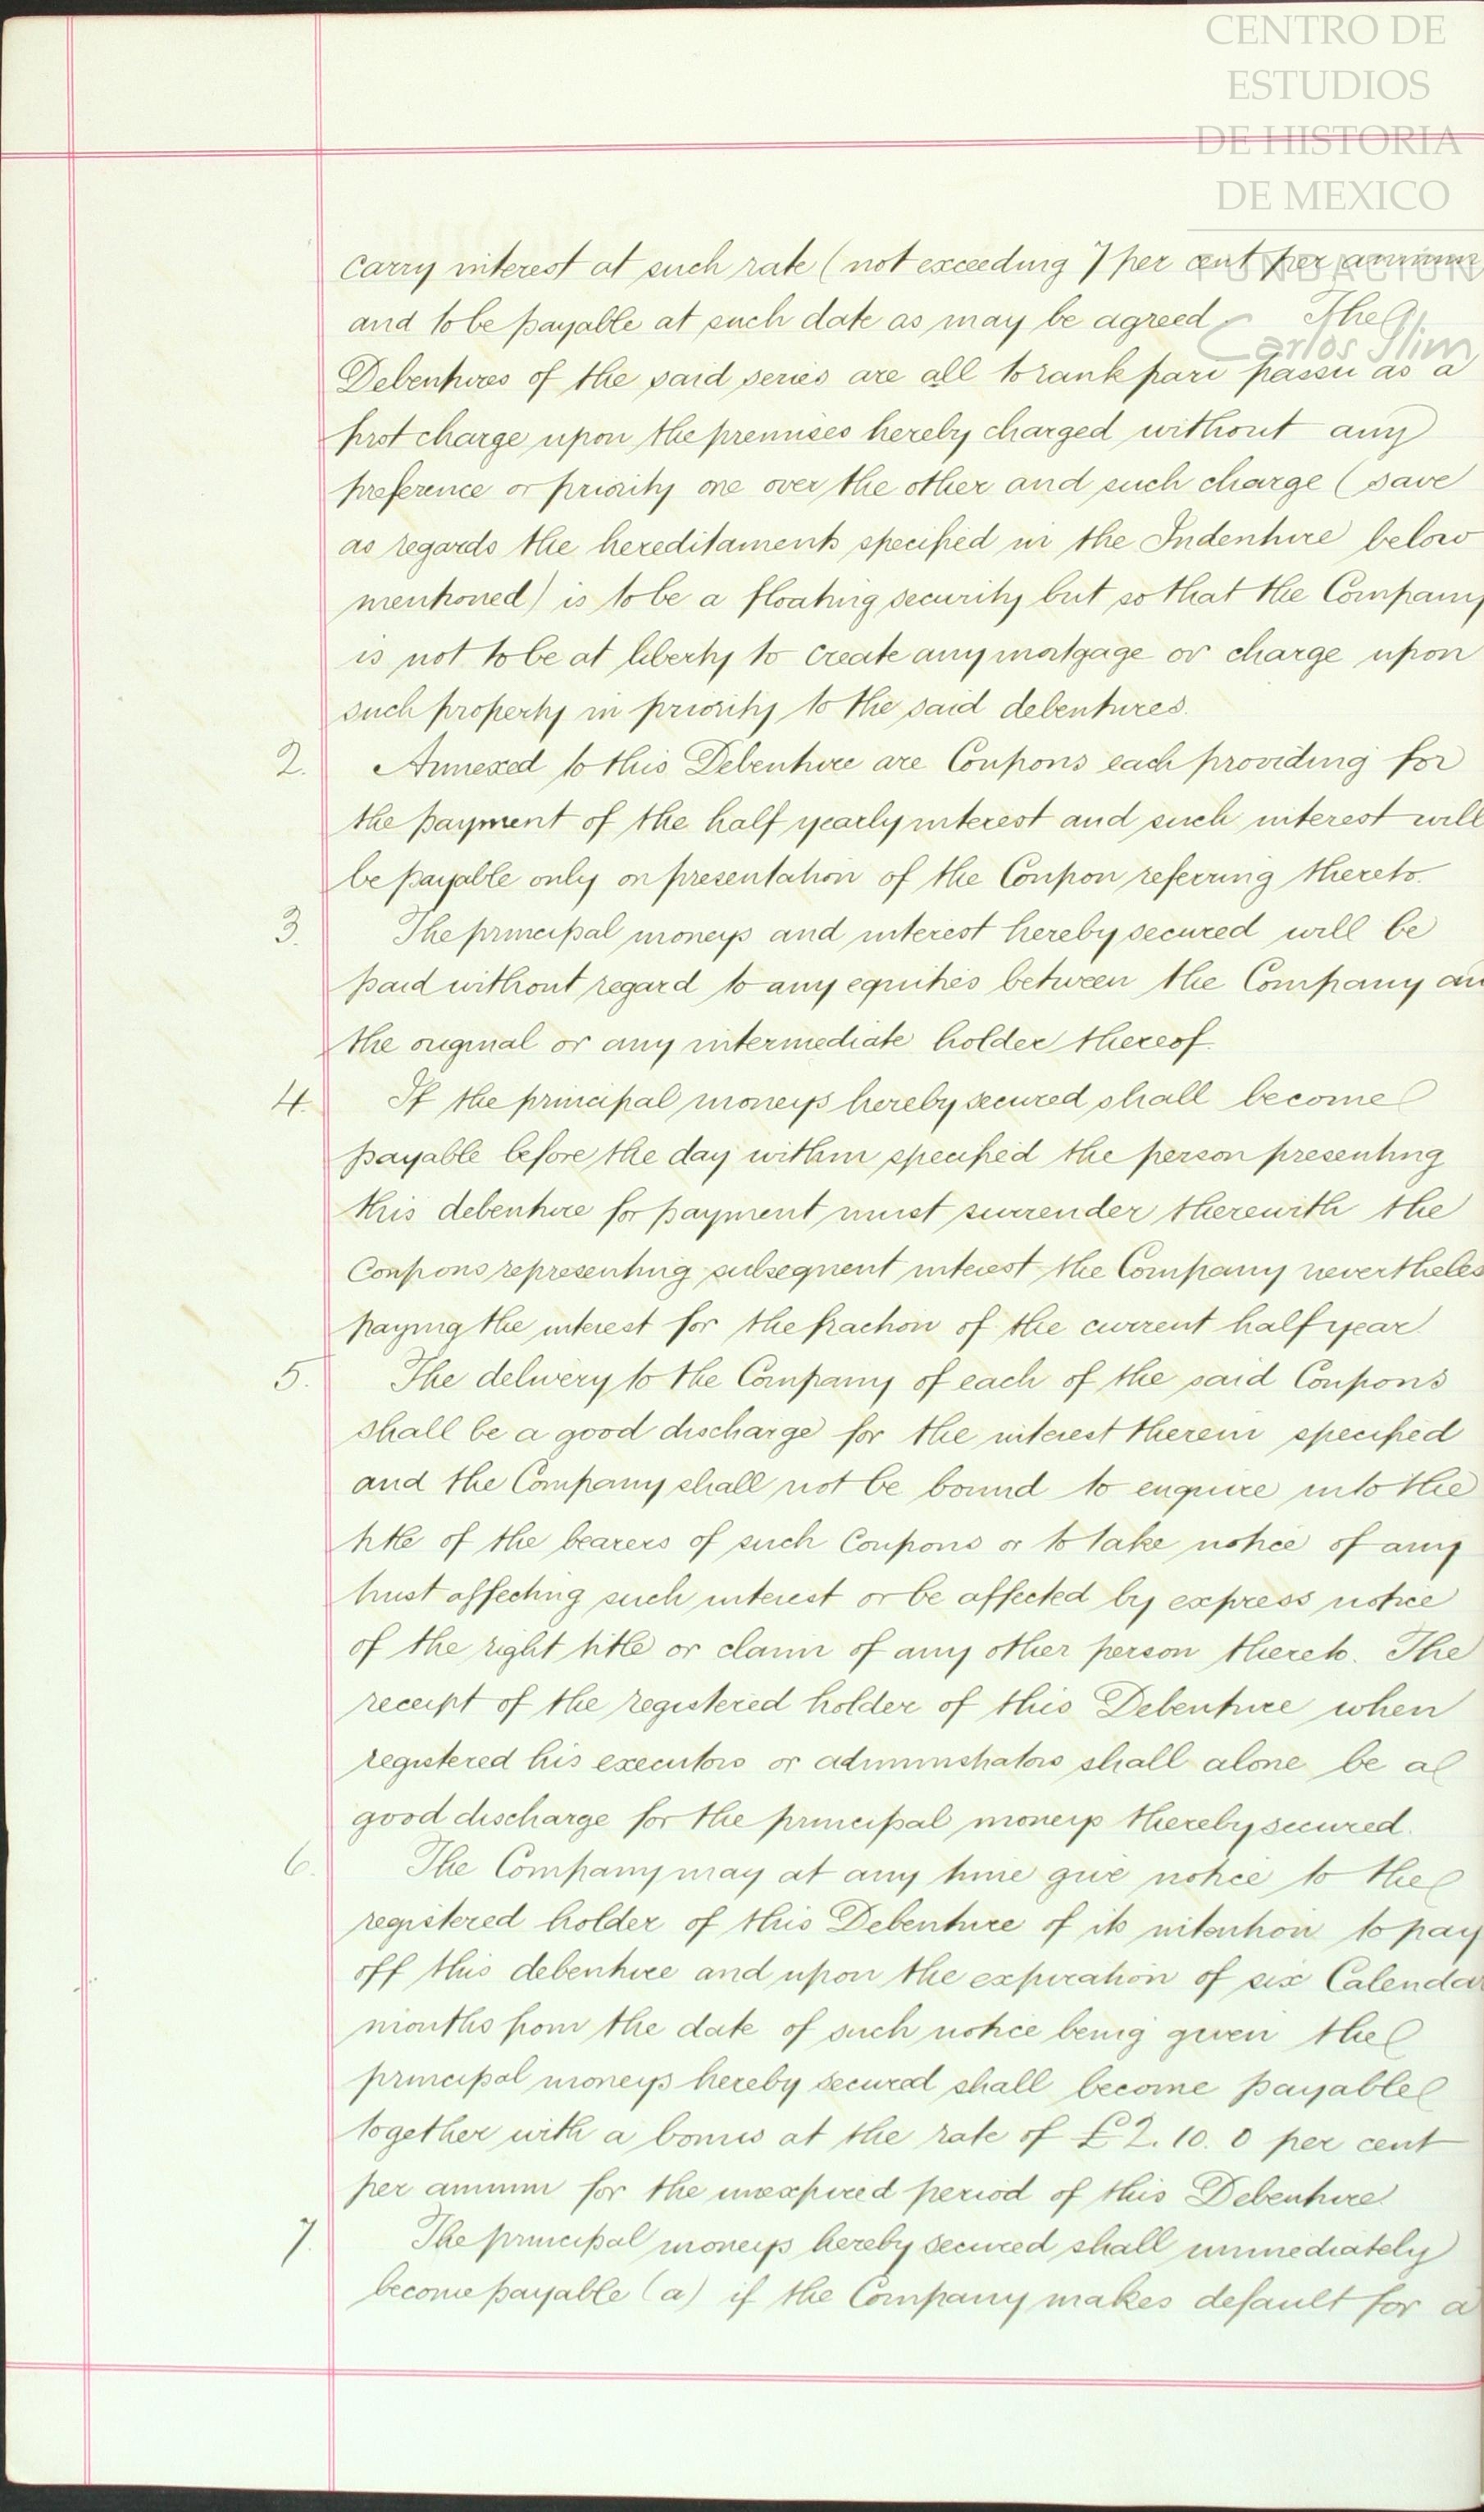 CENTRO DE
ESTUDIOS
DE HISTORIA
DE MEXICO
FUNDACION
Carlos Slim
carry interest at such rate (not exceeding 7 per cent per annum
and to be payable at such date as may be agreed The
Debentures of the said series are all to rank pari passu as a
first charge upon the premises hereby charged without any
preference or priority one over the other and such charge (save
as regards the hereditaments specified in the Indenture below
mentioned) is to be a floating security but so that the Company
is not to be at liberty to create any mortgage or charge upon
such property in priority to the said debentures.
2. Annexed to this Debenture are Coupons each providing for
the payment of the half yearly interest and such interest will
be payable only on presentation of the Coupon referring thereto.
3. The principal moneys and interest hereby secured will be
paid without regard to any equities between the Company an
the original or any intermediate holder thereof.
4. If the principal moneys hereby secured shall become
payable before the day within specified the person presenting
this debenture for payment must surrender therewith the
Coupons representing subsequent interest the Company nevertheles
paying the interest for the fraction of the current half year.
5. The delivery to the Company of each of the said Coupons
shall be a good discharge for the interest therein specified
and the Company shall not be bound to enquire into the
title of the bearers of such Coupons or to take notice of any
trust affecting such interest or be affected by express notice
of the right title or claim of any other person thereto. The
receipt of the registered holder of this Debenture when
registered his executors or administrators shall alone be a
good discharge for the principal moneys thereby secured.
6. The Company may at any time give notice to the
registered holder of this Debenture of its intention to pay
off this debenture and upon the expiration of six Calendar
months from the date of such notice being given the
principal moneys hereby secured shall become payable
together with a bonus at the rate of £2. 10. 0 per cent
per annum for the unexpired period of this Debenture.
7. The principal moneys hereby secured shall immediately
become payable (a) if the Company makes default for a